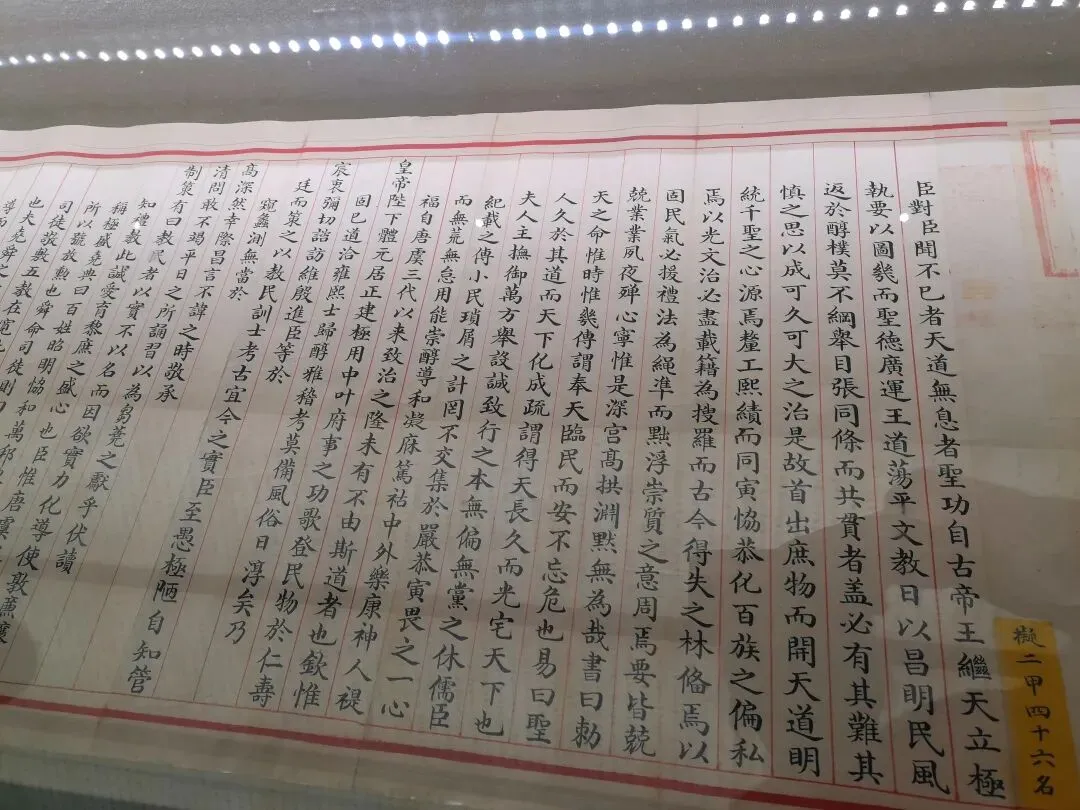 擬二甲四十六名
臣對臣聞不已者天道無息者聖功自古帝王繼天立極
執要以圖幾而聖德廣運王道蕩平文教日以昌明民風
返於醇樸莫不綱舉目張同條而共貫者蓋必有其難其
慎之思以成可久可大之治是故首出庶物而開天道明
統千聖之心源焉釐工熙績而同寅協恭化百族之偏私
焉以光文治必盡載籍為搜羅而古今得失之林俻焉以
固民氣必援禮法為繩準而黜浮崇質之意周焉要皆兢
兢業業夙夜殫心寧惟是深宮高拱淵默無為哉書曰勅
天之命惟時惟幾傳謂奉天臨民而安不忘危也易曰聖
人久於其道而天下化成疏謂得天長久而光宅天下也
夫人主撫御萬方舉設誠致行之本無偏無黨之休儒臣
紀載之傳小民瑣屑之計罔不交集於嚴恭寅畏之一心
而無荒無怠用能崇醇導和凝庥篤祜中外樂康神人禔
福自唐虞三代以來致治之隆未有不由斯道者也欽惟
皇帝陛下體元居正建極用中叶府事之功歌登民物於仁壽
固已道洽雍熙士歸醇雅稽考莫備風俗日淳矣乃
宸衷彌切諮訪維殷進臣等於
廷而策之以教民訓士考古宜今之實臣至愚極陋自知管
窺蠡測無當於
高深然幸際昌言不諱之時敬承
清問敢不竭平日之所誦習以為芻蕘之獻乎伏讀
制策有曰教民者以實不以名而因欲實力化導使敦廉讓
知禮教此誠愛育黎庶之盛心也臣惟唐虞
稱極盛堯典曰百姓昭明協和萬邦
所以號放勲也舜命司徒則曰
司徒敬敷五教在寬
也夫堯舜之